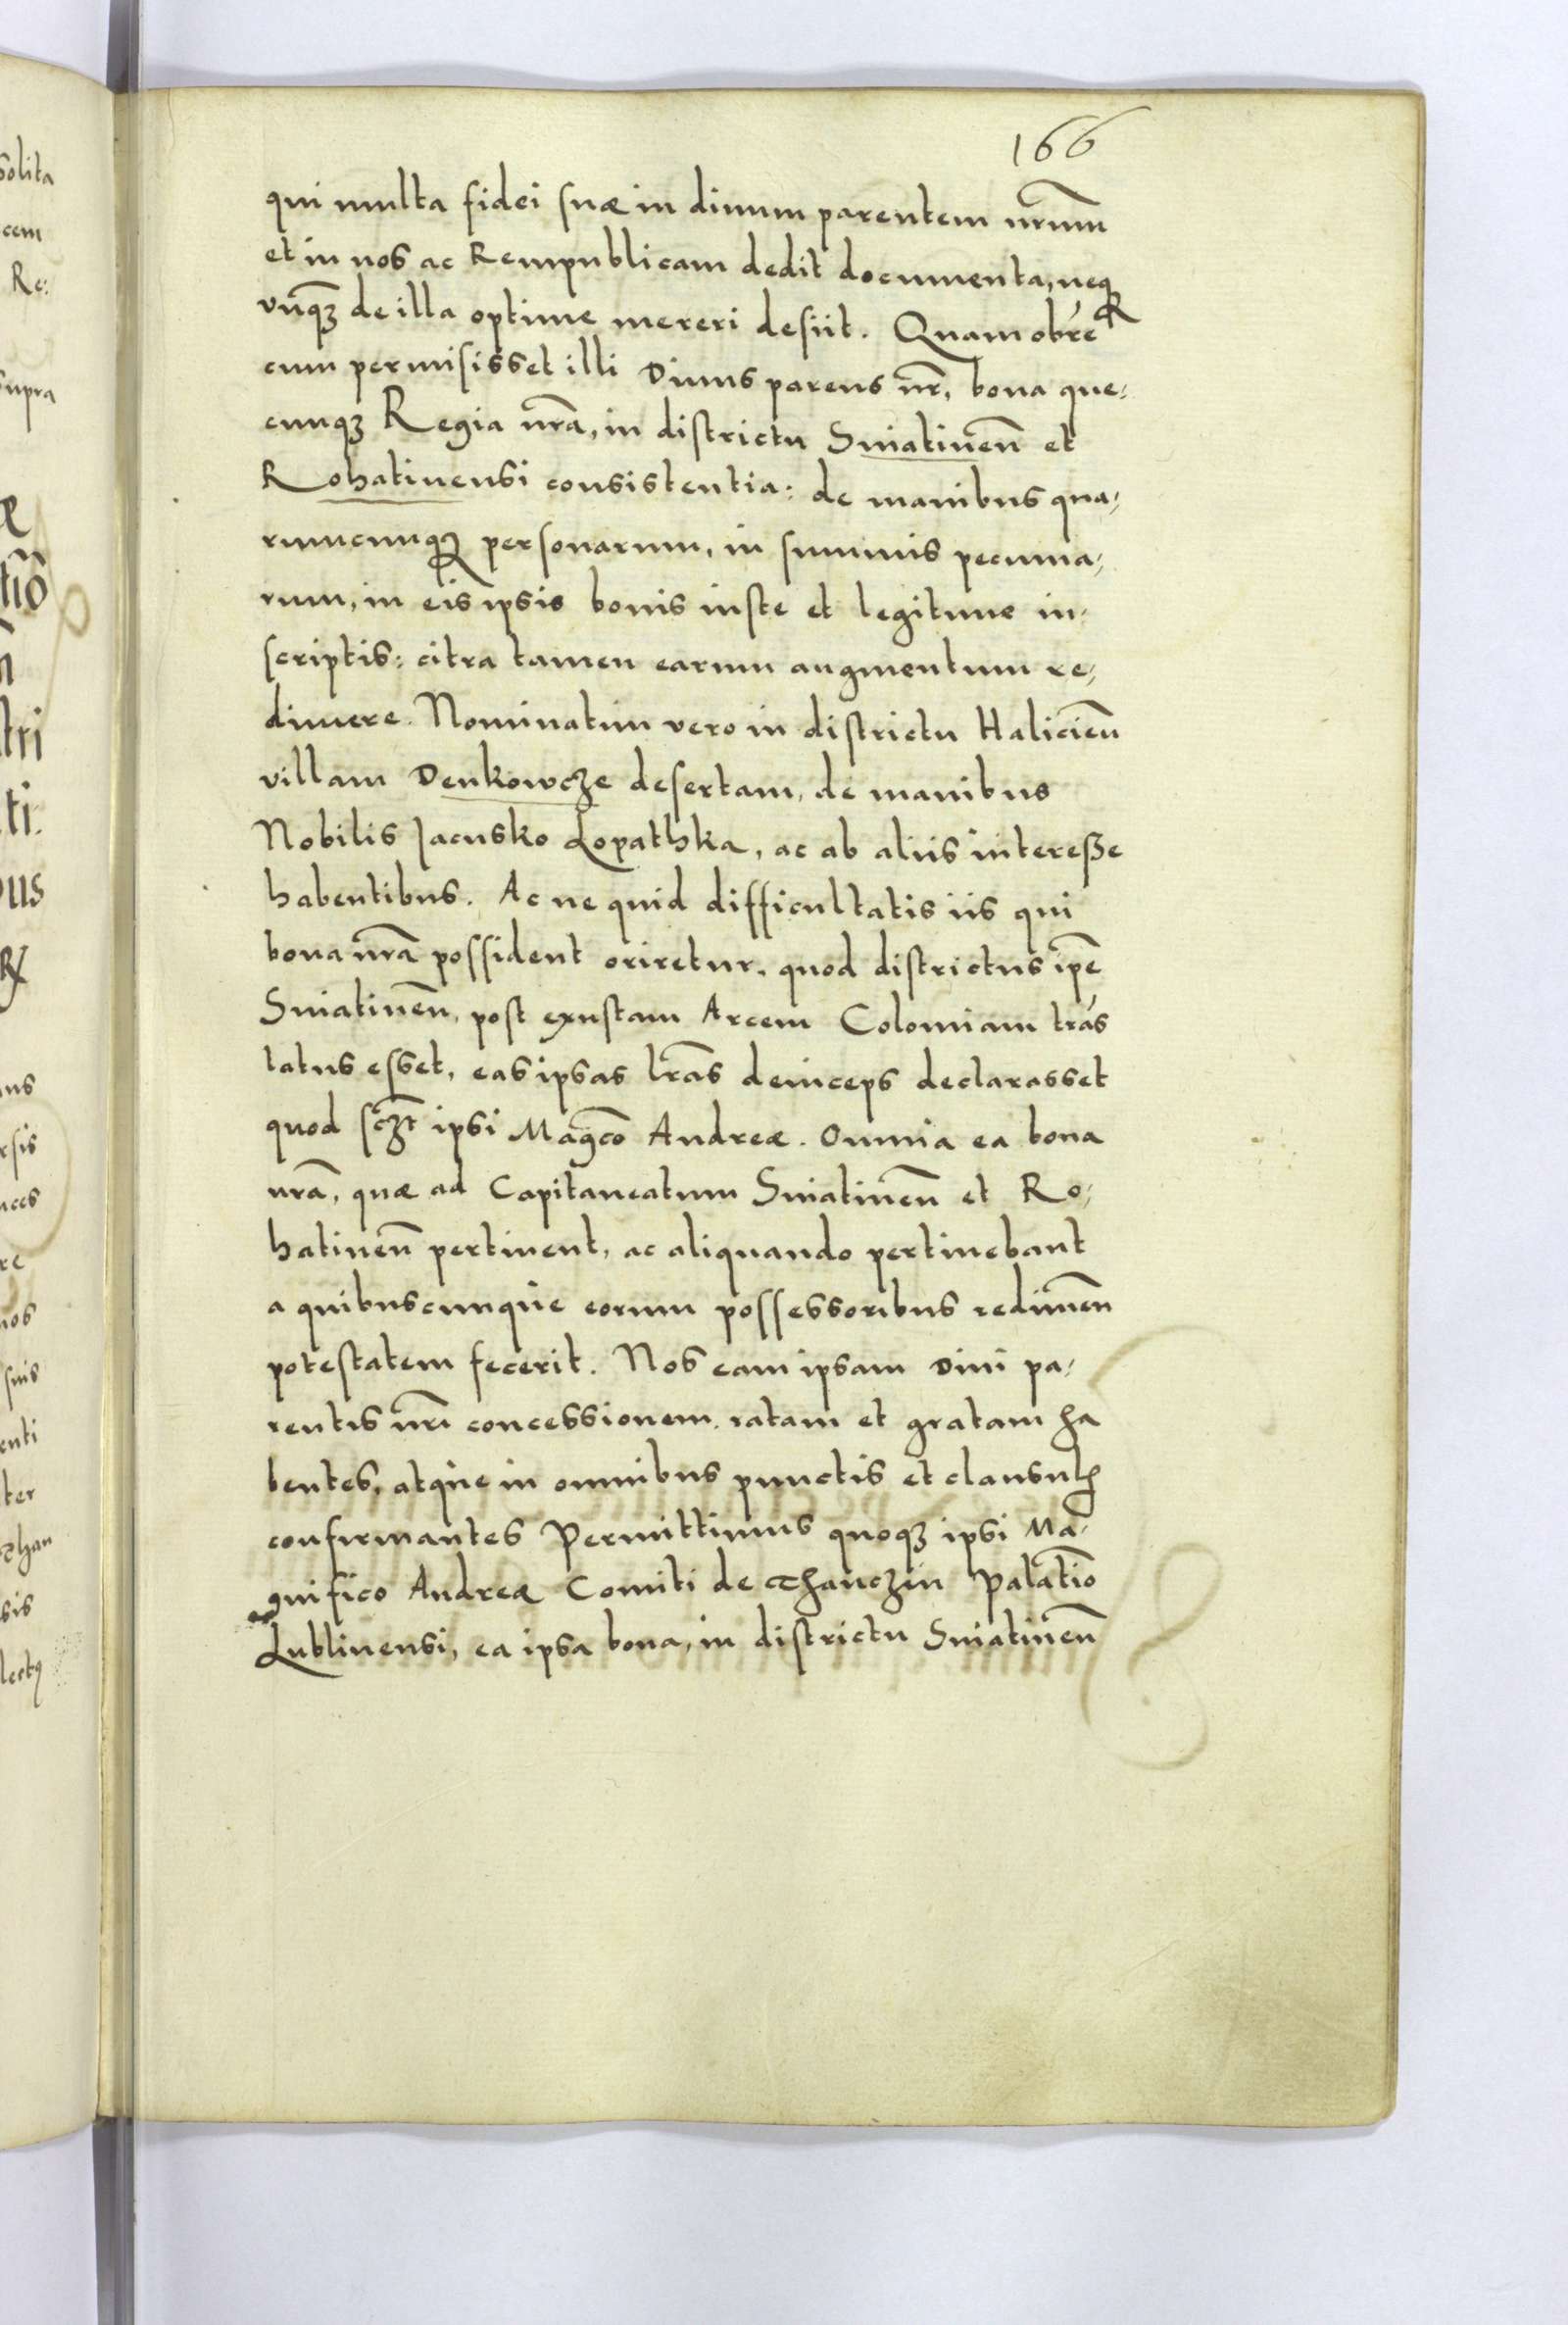 166
qui multa fidei suæ in diuum parentem nr̃um
et in nos ac Rempublicam dedit documenta, neq;
vnq̃ꝫ de illa optime mereri desiit. Quamobrẽ
cum permisisset illi Diuus parens nr̃, bona que-
cunqꝫ Regia nr̃a, in districtu Sniatineñ et
Rohatinensi consistentia: de manibus qua-
rumcunqꝫ personarum, in summis pecunia-
rum, in eis ipsis bonis iuste et legitime in-
scriptis: citra tamen earum augmentum re-
dimere. Nominatim vero in districtu Halicieñ
villam Denkowcze desertam, de manibus
Nobilis Jacusko Lopathka, ac ab aliis interesse
habentibus. Ac ne quid difficultatis iis qui
bona nr̃a possident oriretur, quod districtus ip̃e
Sniatineñ, post exustam Arcem Colomiam trãs
latus esset, eas ipsas lr̃as deinceps declarasset
quod scꝫt ipsi Magc̃o Andreæ. Omnia ea bona
nr̃a, quæ ad Capitaneatum Sniatineñ et Ro-
hatineñ pertinent, ac aliquando pertinebant
a quibuscunque eorum possessoribus redimeñ
potestatem fecerit. Nos eam ipsam Diui pa-
rentis nr̃i concessionem ratam et gratam ha
bentes, atque in omnibus punctis et clausulis
confirmantes Permittimus quoqꝫ ipsi Ma-
gnifico Andreæ Comiti de Thanczin Palatĩo
Lublinensi, ea ipsa bona, in districtu Sniatineñ
solita
cem
Re:
supra
tiõ
tri
ti.
ous
ns
rsis
nces
re
nos
suis
enti
ter
Than
sis